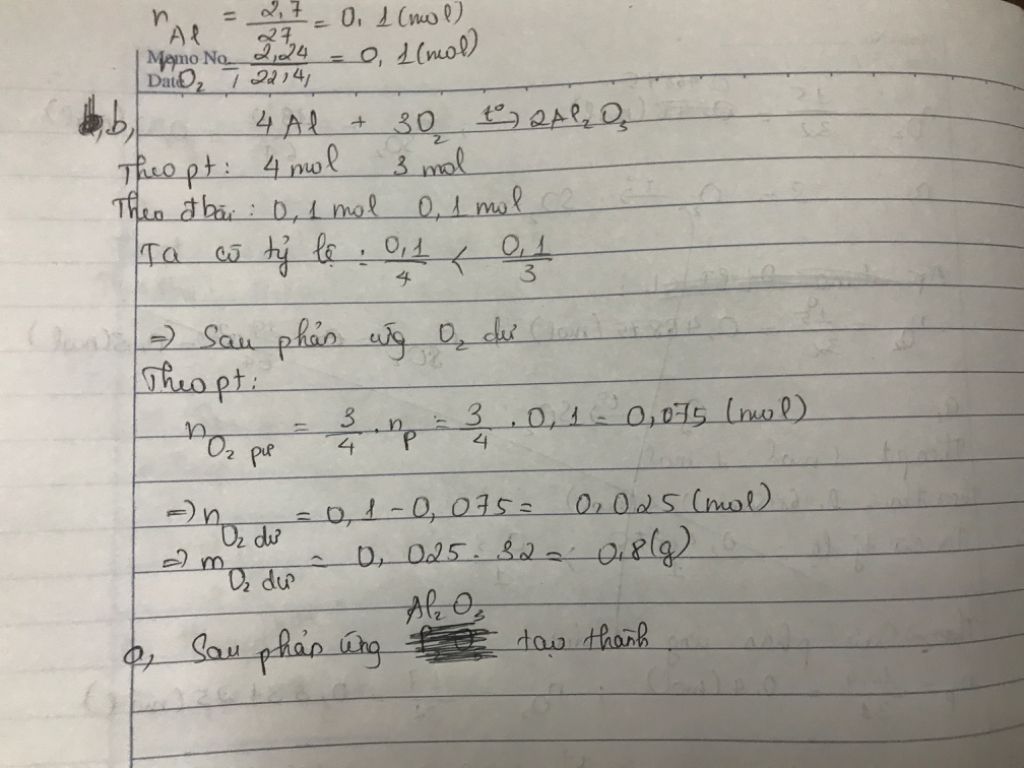 n Al = 2,7/27 = 0,1 (mol)
Memo No.
n O₂ = 2,24/22,4 = 0,1 (mol)
Date
b, 4Al + 3O₂ t° → 2Al₂O₃
Theo pt: 4 mol 3 mol
Theo đ bài: 0,1 mol 0,1 mol
Ta có tỷ lệ: 0,1/4 < 0,1/3
=> Sau phản ứg O₂ dư
Theo pt:
n O₂ pư = 3/4 . n p = 3/4 . 0,1 = 0,075 (mol)
=> n O₂ dư = 0,1 - 0,075 = 0,025 (mol)
=> m O₂ dư = 0,025 . 32 = 0,8 (g)
Al₂O₃
Sau phản ứng tạo thành